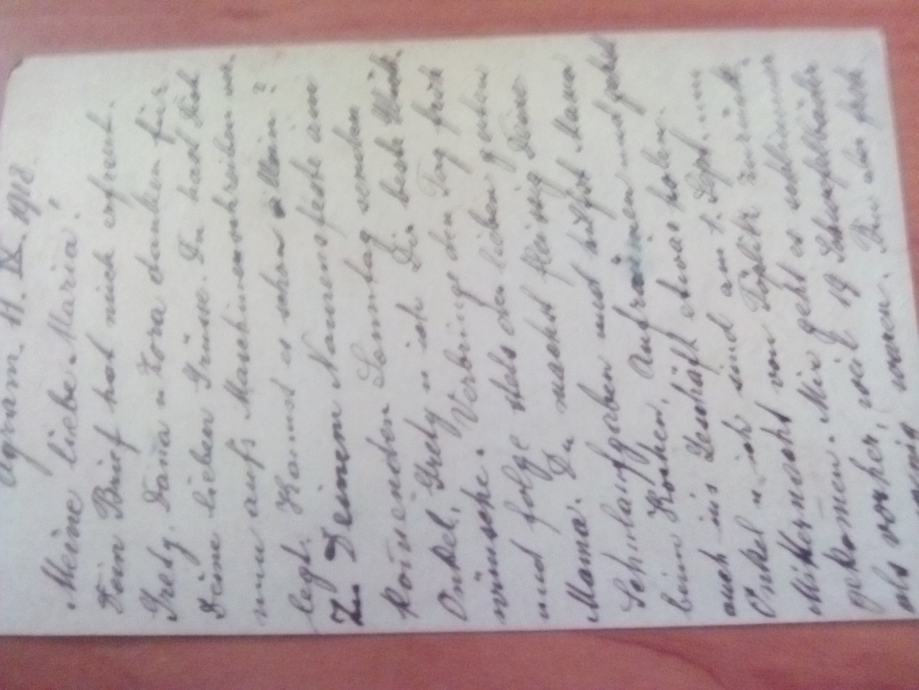 Agram. 11. IX. 1912.
Meine liebe Maria!
Dein Brief hat mich erfreut.
Gretz, Dana u Zora danken für
Deine lieben Grüsse. Du hast Dich
nun aufs Maschinenschreiben ver
legt. Kannst es schon allein?
Zu Deinem Namensfeste am
komenden Sonntag senden
Onkel, Gretz u ich Dir beste Glück
wünsche. Verbringe den Tag froh
und folge stets der lieben guten
Mama. Du machst fleissig Deine
Schulaufgaben und hilfst Mama
beim Kochen, Aufräumen und gehst
auch ins Geschäft etwas holen.
Onkel u ich sind am 1. Sept. um
Mitternacht von Töplitz zurück
gekomen. Mir geht es schlimmer
als vorher, weil 19 Schlammbäder
zu wenig waren.